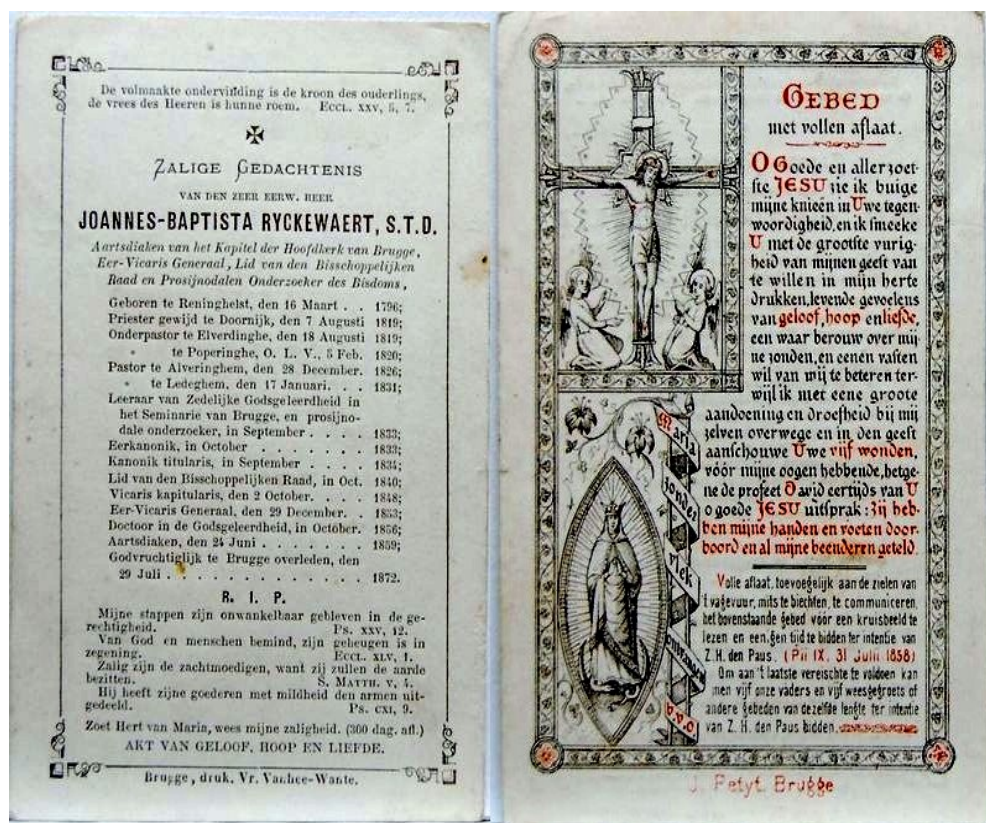 De volmaakte ondervinding is de kroon des ouderlings,
de vrees des Heeren is hunne roem. ECCL. XXV, 5, 7.
ZALIGE GEDACHTENIS
VAN DEN ZEER EERW. HEER
JOANNES-BAPTISTA RYCKEWAERT, S.T.D.
Aartsdiaken van het Kapitel der Hoofdkerk van Brugge,
Eer-Vicaris Generaal, Lid van den Bisschoppelijken
Raad en Prosijnodalen Onderzoeker des Bisdoms,
Geboren te Reninghelst, den 16 Maart . . 1796;
Priester gewijd te Doornijk, den 7 Augusti 1819;
Onderpastor te Elverdinghe, den 18 Augusti 1819;
" te Poperinghe, O. L. V., 5 Feb. 1820;
Pastor te Alveringhem, den 28 December. 1826;
" te Ledeghem, den 17 Januari. . . 1831;
Leeraar van Zedelijke Godsgeleerdheid in
het Seminarie van Brugge, en prosijno-
dale onderzoeker, in September . . . . 1833;
Eerkanonik, in October . . . . . . . 1833;
Kanonik titularis, in September . . . . 1834;
Lid van den Bisschoppelijken Raad, in Oct. 1840;
Vicaris kapitularis, den 2 October. . . . 1848;
Eer-Vicaris Generaal, den 29 December. . 1853;
Doctoor in de Godsgeleerdheid, in October. 1856;
Aartsdiaken, den 24 Juni . . . . . . . 1859;
Godvruchtiglijk te Brugge overleden, den
29 Juli . . . . . . . . . . . . 1872.
R. I. P.
Mijne stappen zijn onwankelbaar gebleven in de ge-
rechtigheid. Ps. XXV, 12.
Van God en menschen bemind, zijn geheugen is in
zegening. ECCL. XLV, 1.
Zalig zijn de zachtmoedigen, want zij zullen de aarde
bezitten. S. MATTH. V, 4.
Hij heeft zijne goederen met mildheid den armen uit-
gedeeld. Ps. CXI, 9.
Zoet Hert van Maria, wees mijne zaligheid. (300 dag. afl.)
AKT VAN GELOOF, HOOP EN LIEFDE.
Brugge, druk. Vr. Vanhee-Wante.
GEBED
met vollen aflaat.
O Goede en allerzoet-
ste JESU zie ik buige
mijne knieën in Uwe tegen-
woordigheid, en ik smeeke
U met de grootste vurig-
heid van mijnen geest van
te willen in mijn herte
drukken, levende gevoelens
van geloof, hoop en liefde,
een waar berouw over mij
ne zonden, en eenen vasten
wil van mij te beteren ter-
wijl ik met eene groote
aandoening en droefheid bij mij
zelven overwege en in den geest
aanschouwe Uwe vijf wonden,
vóór mijne oogen hebbende, hetge-
ne de profeet David eertijds van U
o goede JESU uitsprak: zij heb-
ben mijne handen en voeten door-
boord en al mijne beenderen geteld.
Volle aflaat, toevoegelijk aan de zielen van
't vagevuur, mits te biechten, te communiceren,
het bovenstaande gebed voor een kruisbeeld te
lezen en een gen tijd te bidden ter intentie van
Z.H. den Paus. (Pii IX. 31 Julii 1858)
Om aan 't laatste vereischte te voldoen kan
men vijf onze vaders en vijf weesgegroets of
andere gebeden van dezelfde lengte ter intentie
van Z. H. den Paus bidden.
Maria
zonder
vlek
ontvangen
b.v.o.
J. Petyt. Brugge